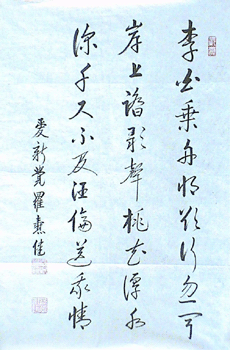 李白乘舟将欲行忽闻
岸上踏歌聲桃花潭水
深千尺不及汪倫送我情
愛新覺羅燾佳